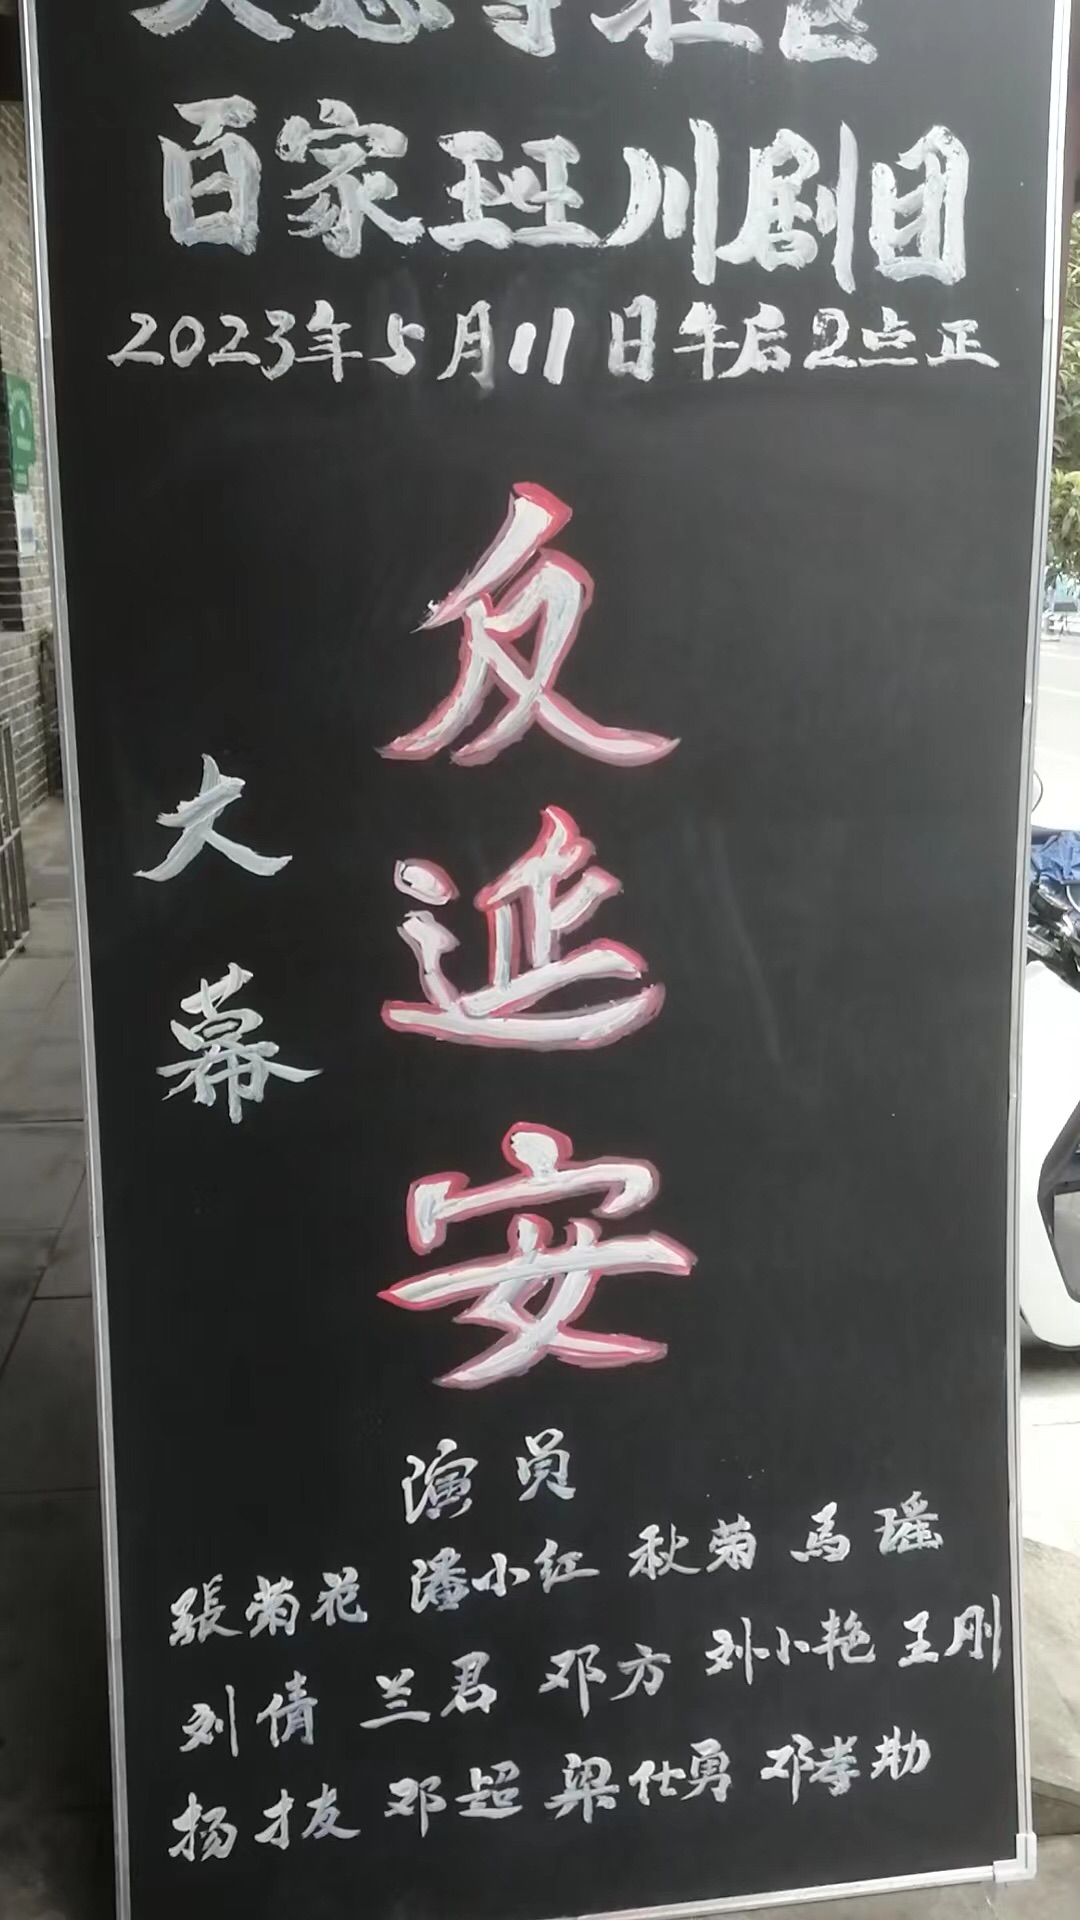 大慈寺社区
百家班川剧团
2023年5月11日午后2点正
反延安
大幕
演员
張菊花 潘小红 秋菊 马瑶
刘倩 兰君 邓方 刘小艳 王刚
扬才友 邓超 梁仕勇 邓孝